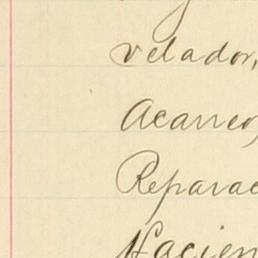 velador,
Acarreo,
Reparac
Hacien